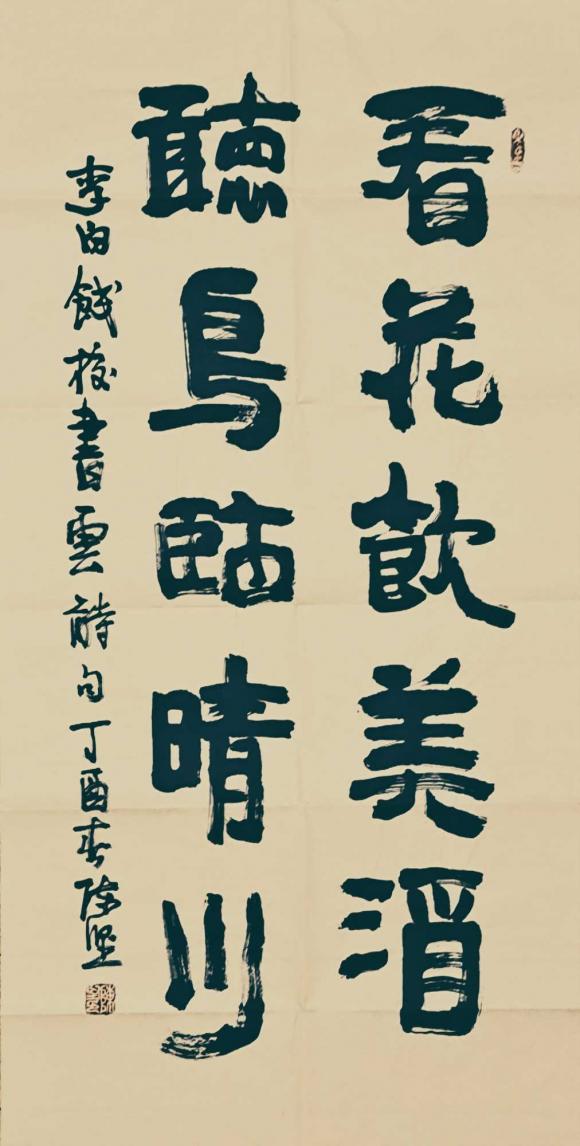 看花飲美酒
聽鳥臨晴川
李白餞校書雲詩句丁酉春陳堅